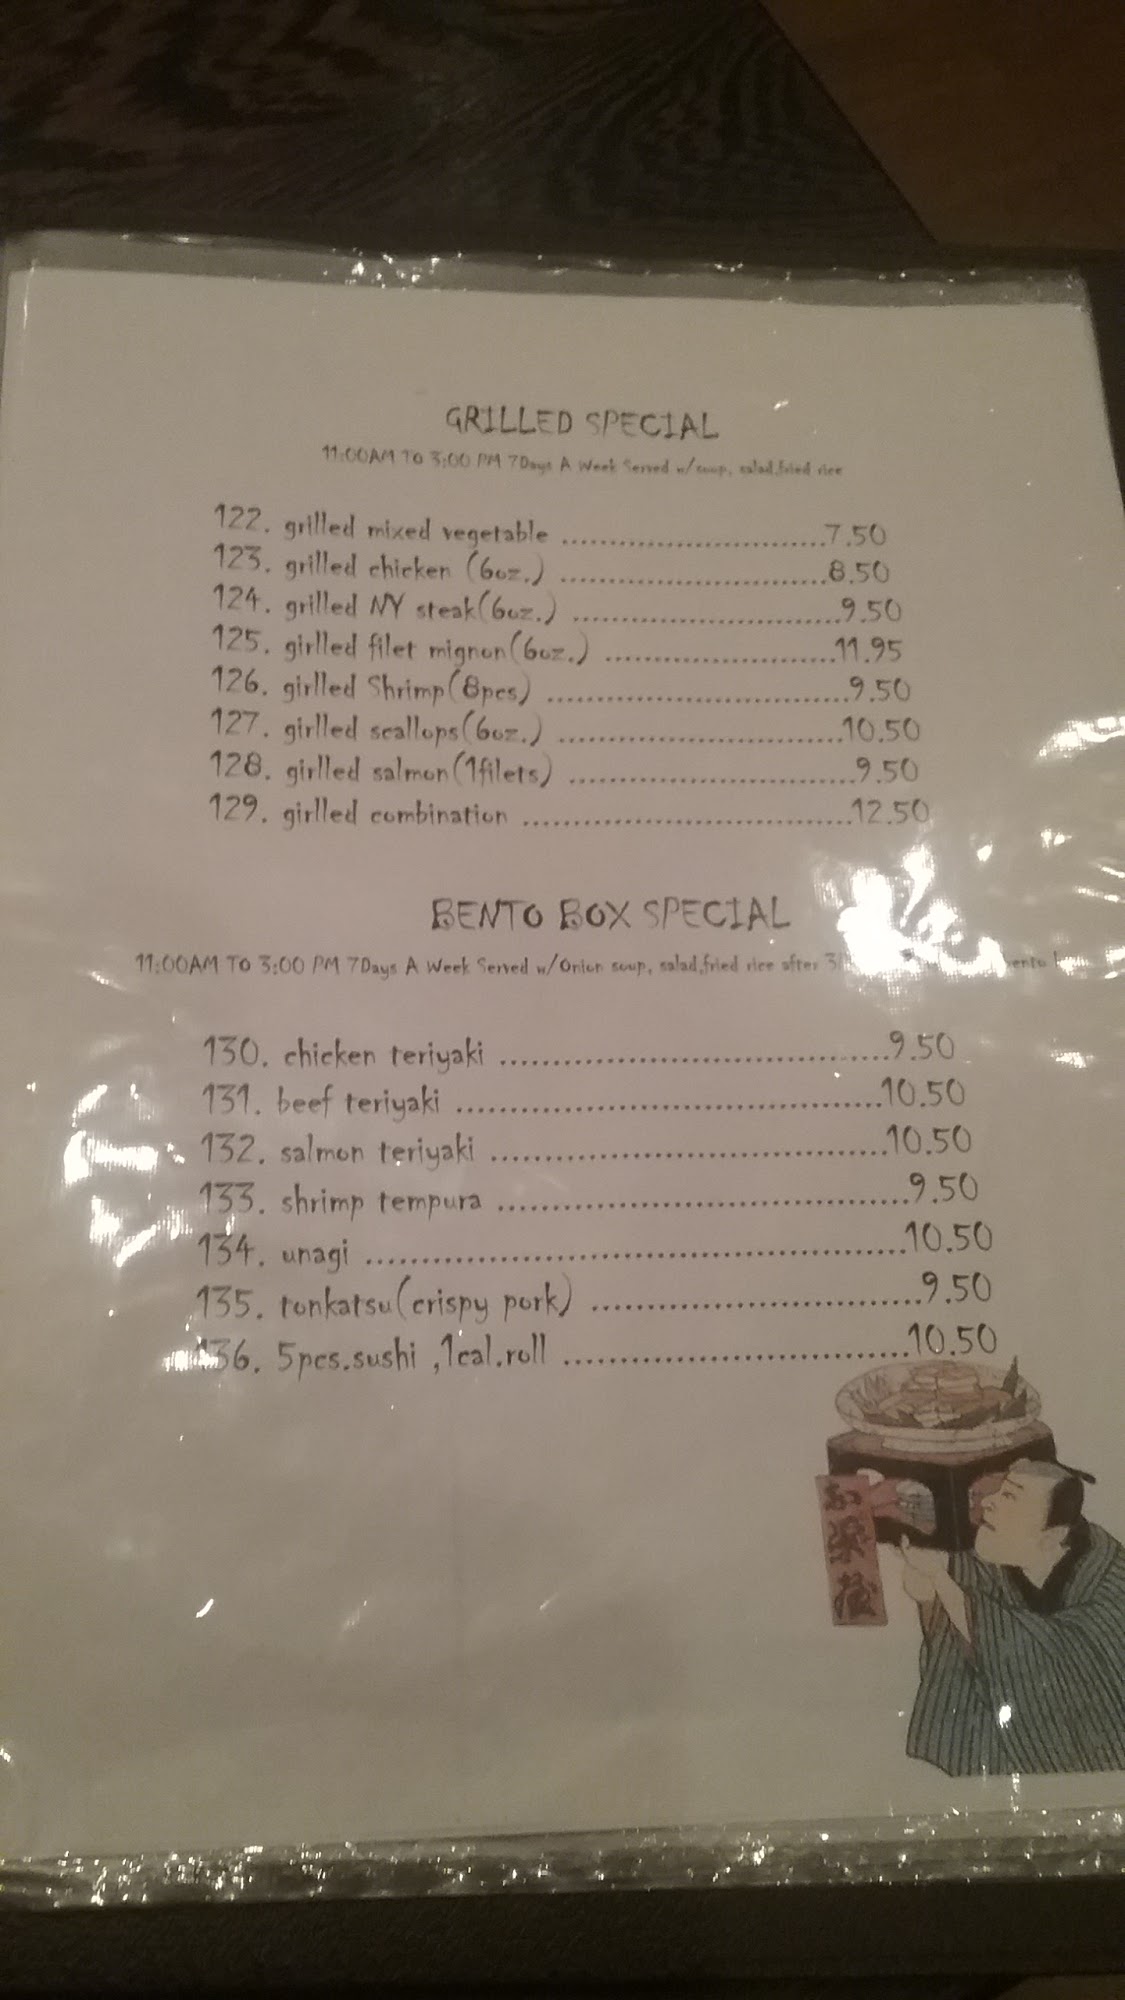 GRILLED SPECIAL
11:00AM TO 3:00 PM 7Days A Week Served w/soup, salad,fried rice
122. grilled mixed vegetable ............................7.50
123. grilled chicken (6oz.) ............................8.50
124. grilled NY steak(6oz.) ............................9.50
125. girlled filet mignon(6oz.) ........................11.95
126. girlled Shrimp(8pcs) ...............................9.50
127. girlled scallops(6oz.) .............................10.50
128. girlled salmon(1filets) .............................9.50
129. girlled combination ..................................12.50
BENTO BOX SPECIAL
11:00AM TO 3:00 PM 7Days A Week Served w/Onion soup, salad,fried rice after
130. chicken teriyaki .....................................9.50
131. beef teriyaki .........................................10.50
132. salmon teriyaki ......................................10.50
133. shrimp tempura ......................................9.50
134. unagi ..................................................10.50
135. tonkatsu(crispy pork) ...............................9.50
136. 5pcs.sushi ,1cal.roll ................................10.50